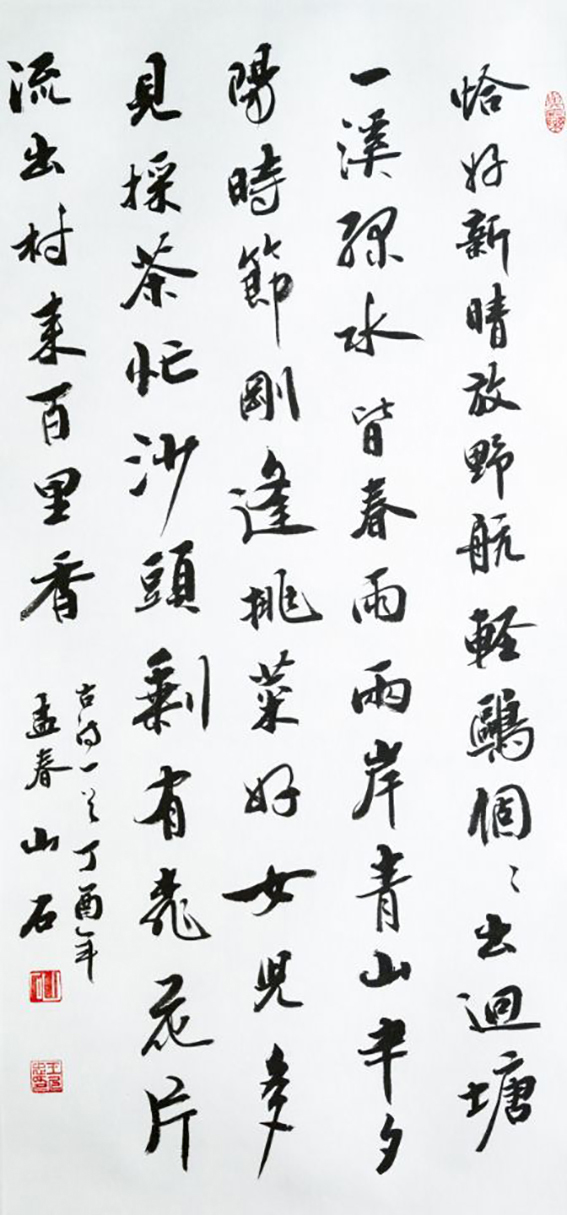 恰好新晴放野航輕鷗個〻出迴塘
一溪緑水皆春雨兩岸青山半夕
陽時節剛逢挑菜好女児多
見採茶忙沙頭剩有桃花片
流出村来百里香
古诗一首丁酉年
孟春山石